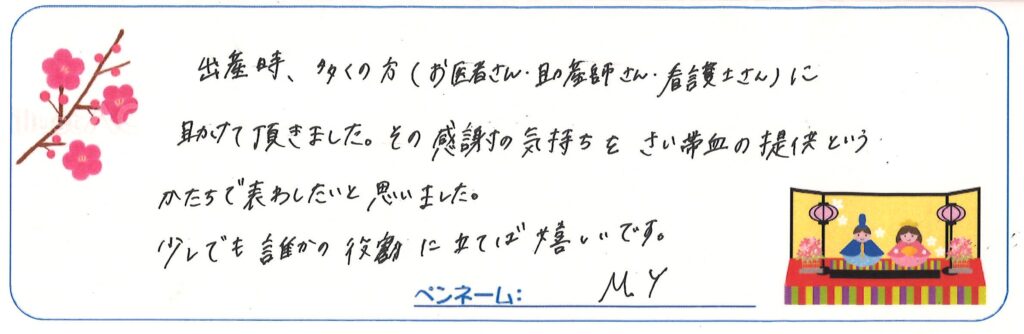 出産時、多くの方（お医者さん・助産師さん・看護士さん）に
助けて頂きました。その感謝の気持ちをさい帯血の提供という
かたちで表わしたいと思いました。
少しでも誰かの役割に立てば嬉しいです。
ペンネーム： M Y